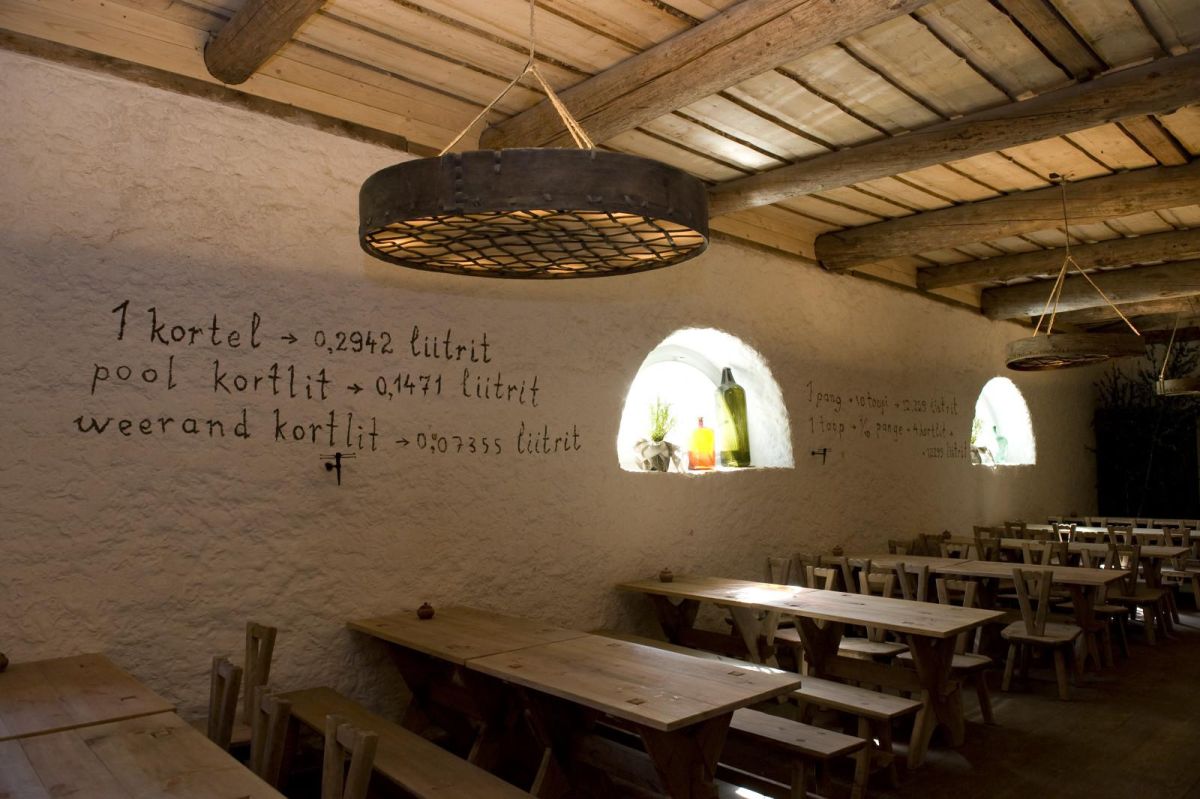 1 kortel → 0,2942 liitrit
pool kortlit → 0,1471 liitrit
weerand kortlit → 0,07355 liitrit
1 pang → 10 toopi → liitrit
1 toop → 1/10 pange → 4 kortlit →
liitrit